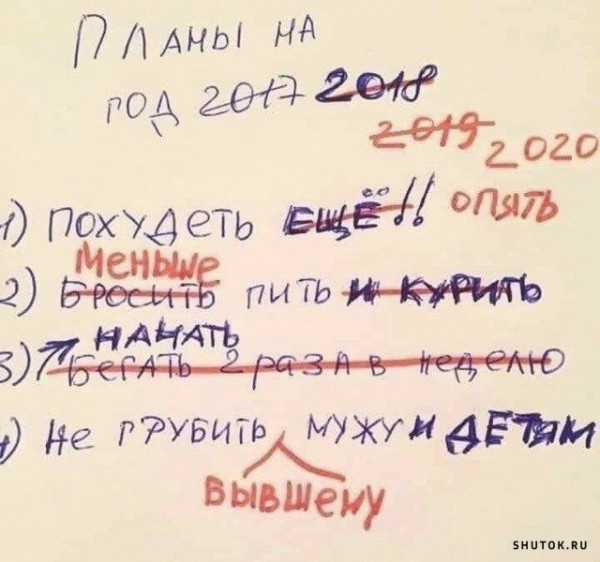 Планы на
год 2017 2018
2019 2020
1) Похудеть ЕЩЁ!! опять
меньше
2) Бросить пить и курить
начать
3) Бегать 2 раза в неделю
4) Не грубить мужу и детям
бывшему
SHUTOK.RU